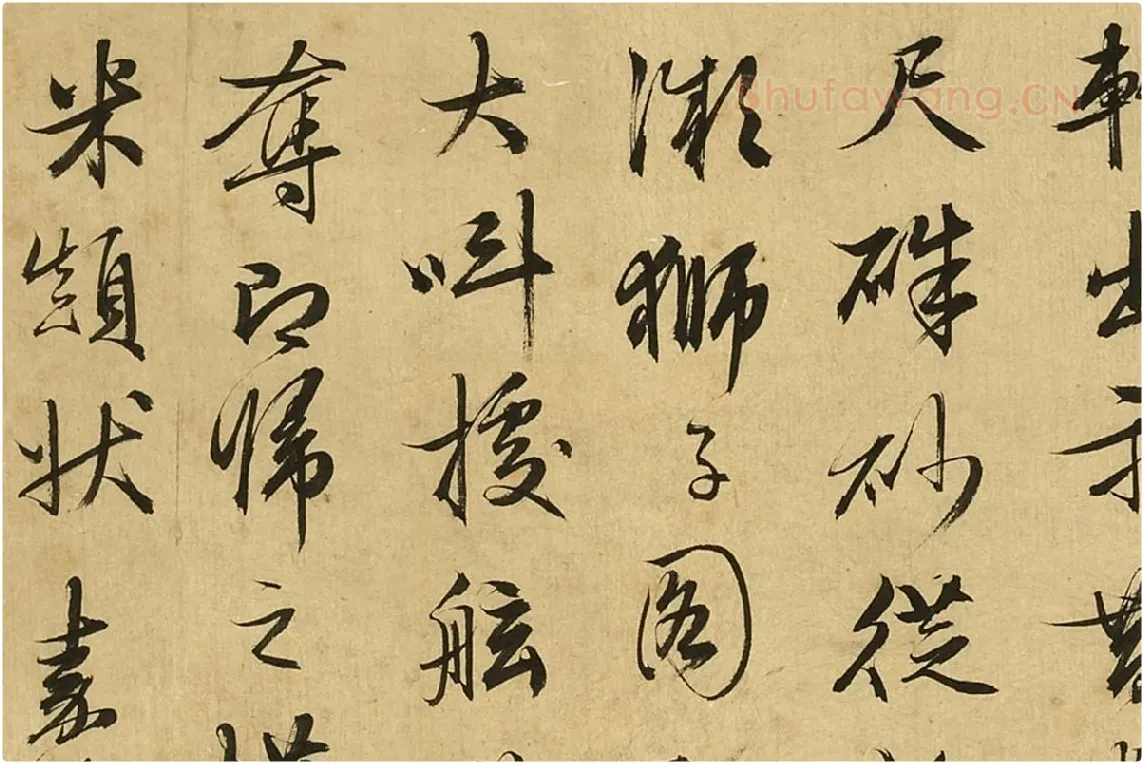 尺硃砂從
獅子图
大叫據舷
奪即歸之
米顛狀
Shufawang.CN